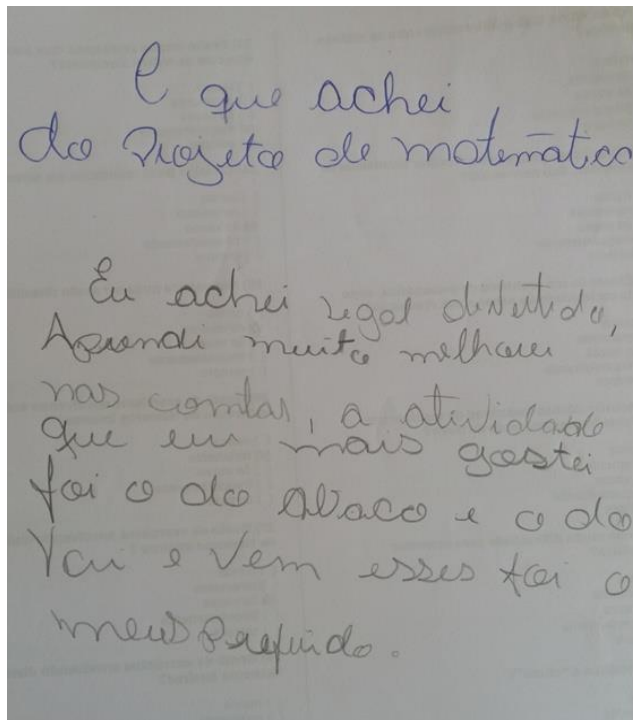 O que achei
do Projeto de matemática
Eu achei legal divertido,
Aprendi muito melhorei
nas contas, a atividade
que eu mais gostei
foi o do abaco e o do
Vai e Vem esses foi o
meus Prefirido.